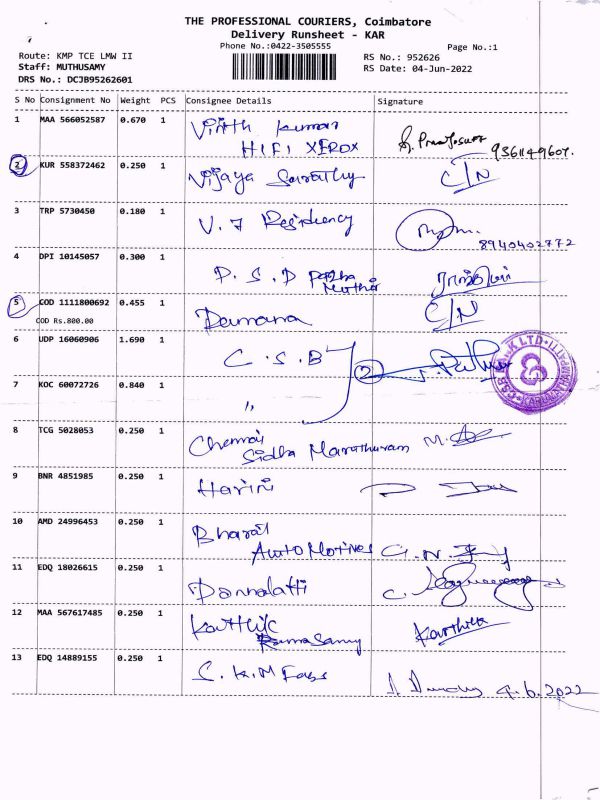 THE PROFESSIONAL COURIERS, Coimbatore
Delivery Runsheet - KAR
Phone No.:0422-3505555
Page No.:1
Route: KMP TCE LMW II
RS No.: 952626
Staff: MUTHUSAMY
RS Date: 04-Jun-2022
DRS No.: DCJB95262601
S No Consignment No Weight PCS Consignee Details Signature
1 MAA 566052587 0.670 1 Vinith Kumar
HIFI XEROX
9361149607.
2 KUR 558372462 0.250 1 Vijaya Sarathy C/N
3 TRP 5730450 0.180 1 V. J Residency
8940402772
4 DPI 10145057 0.300 1
P. S. D
5 COD 1111800692 0.455 1 Ramana C/N
COD Rs.800.00
6 UDP 16060906 1.690 1 C. S. B 2
7 KOC 60072726 0.840 1 "
8 TCG 5028053 0.250 1 Chennai
Sidha
9 BNR 4851985 0.250 1 Harini
10 AMD 24996453 0.250 1 Bharat
Auto Motives
11 EDQ 18026615 0.250 1
12 MAA 567617485 0.250 1 Karthik
Ramasamy
13 EDQ 14889155 0.250 1 C. K. M Fabs
4.6.2022